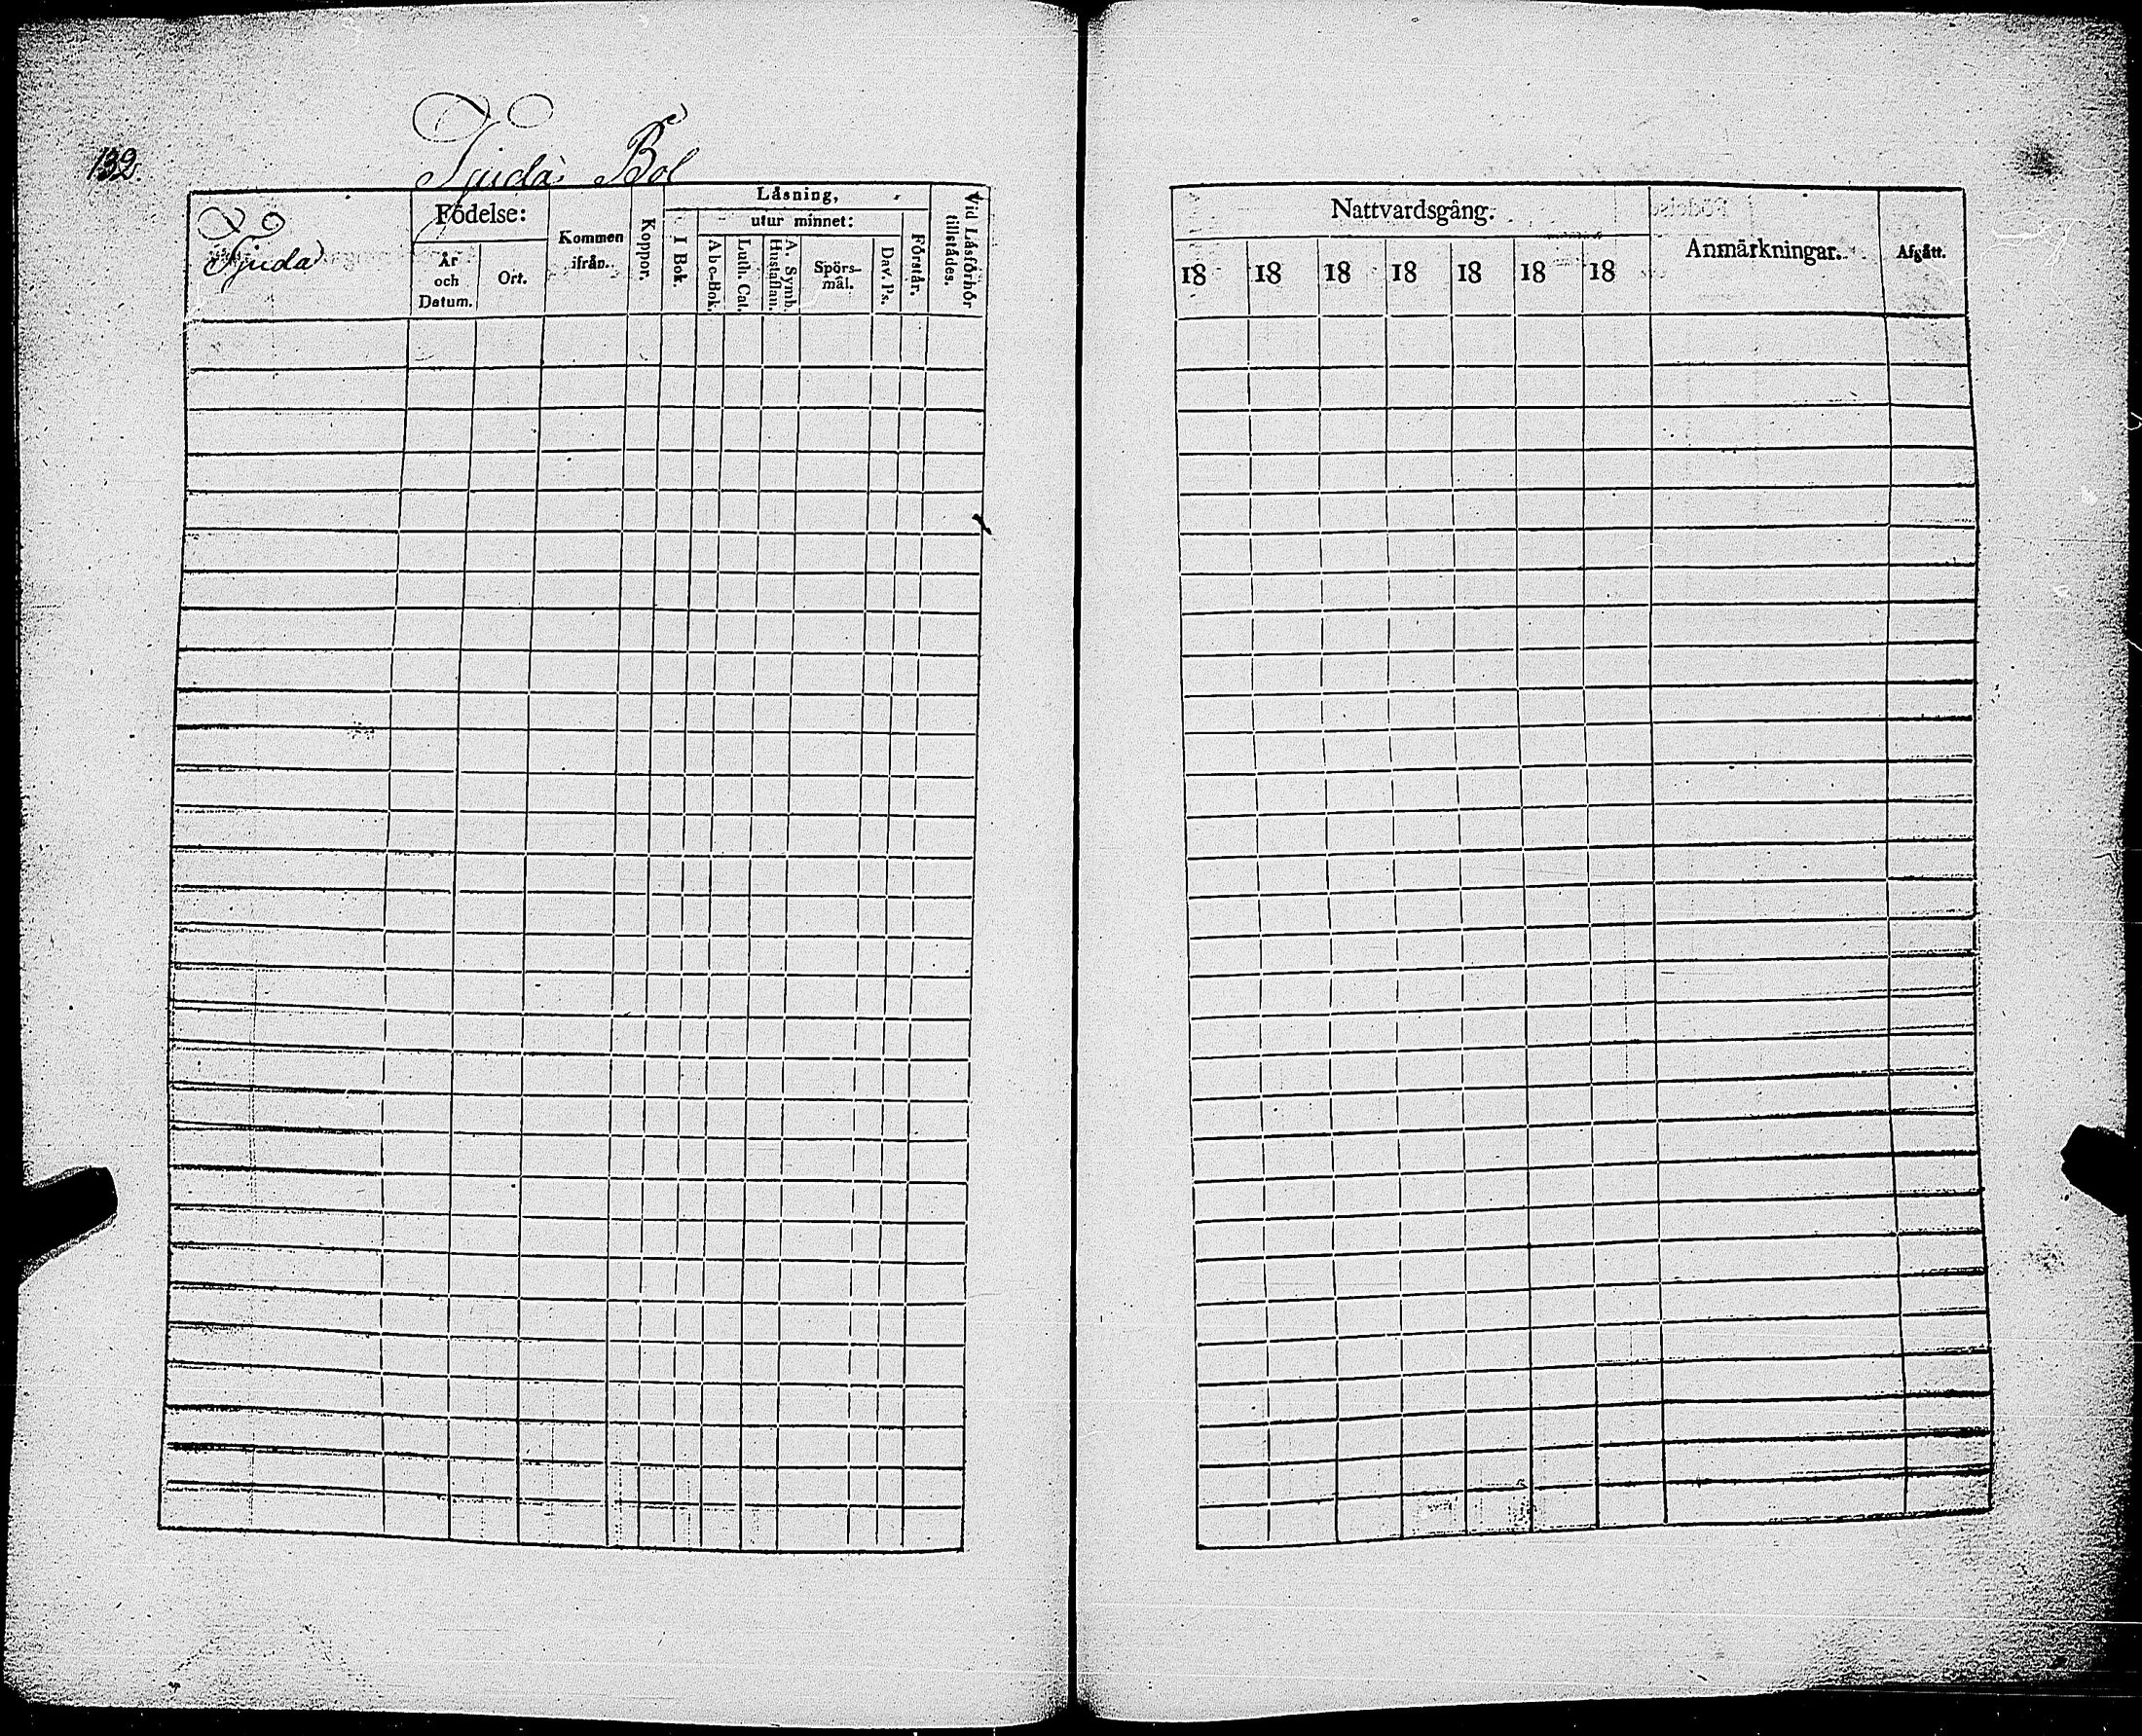 132.
Tjuda Bol
Tjuda
Födelse:
År och Datum.
Ort.
Kommen ifrån.
Koppor.
Läsning,
I Bok.
utur minnet:
Abc-Bok.
Luth. Cat.
A. Symb. Hustaflan.
Spörs-mål.
Dav. Ps.
Förstår.
Vid Läsförhör tillstådes.
Nattvardsgång.
18 18 18 18 18 18 18
Anmärkningar.
Afgått.